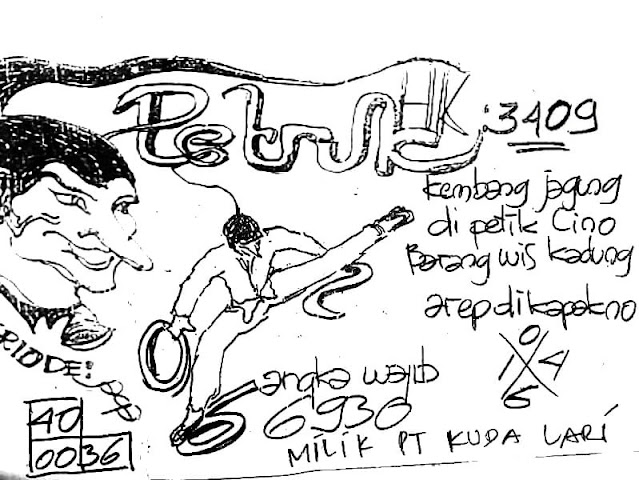 Petruk HK: 3409
Kembang jagung
di petik Cino
Barang wis kadung
arep dikapakno
0
1 X 4
6
2
0
6
RIODE:
angka wajib
6930
40
00 36
MILIK PT KUDA LARI